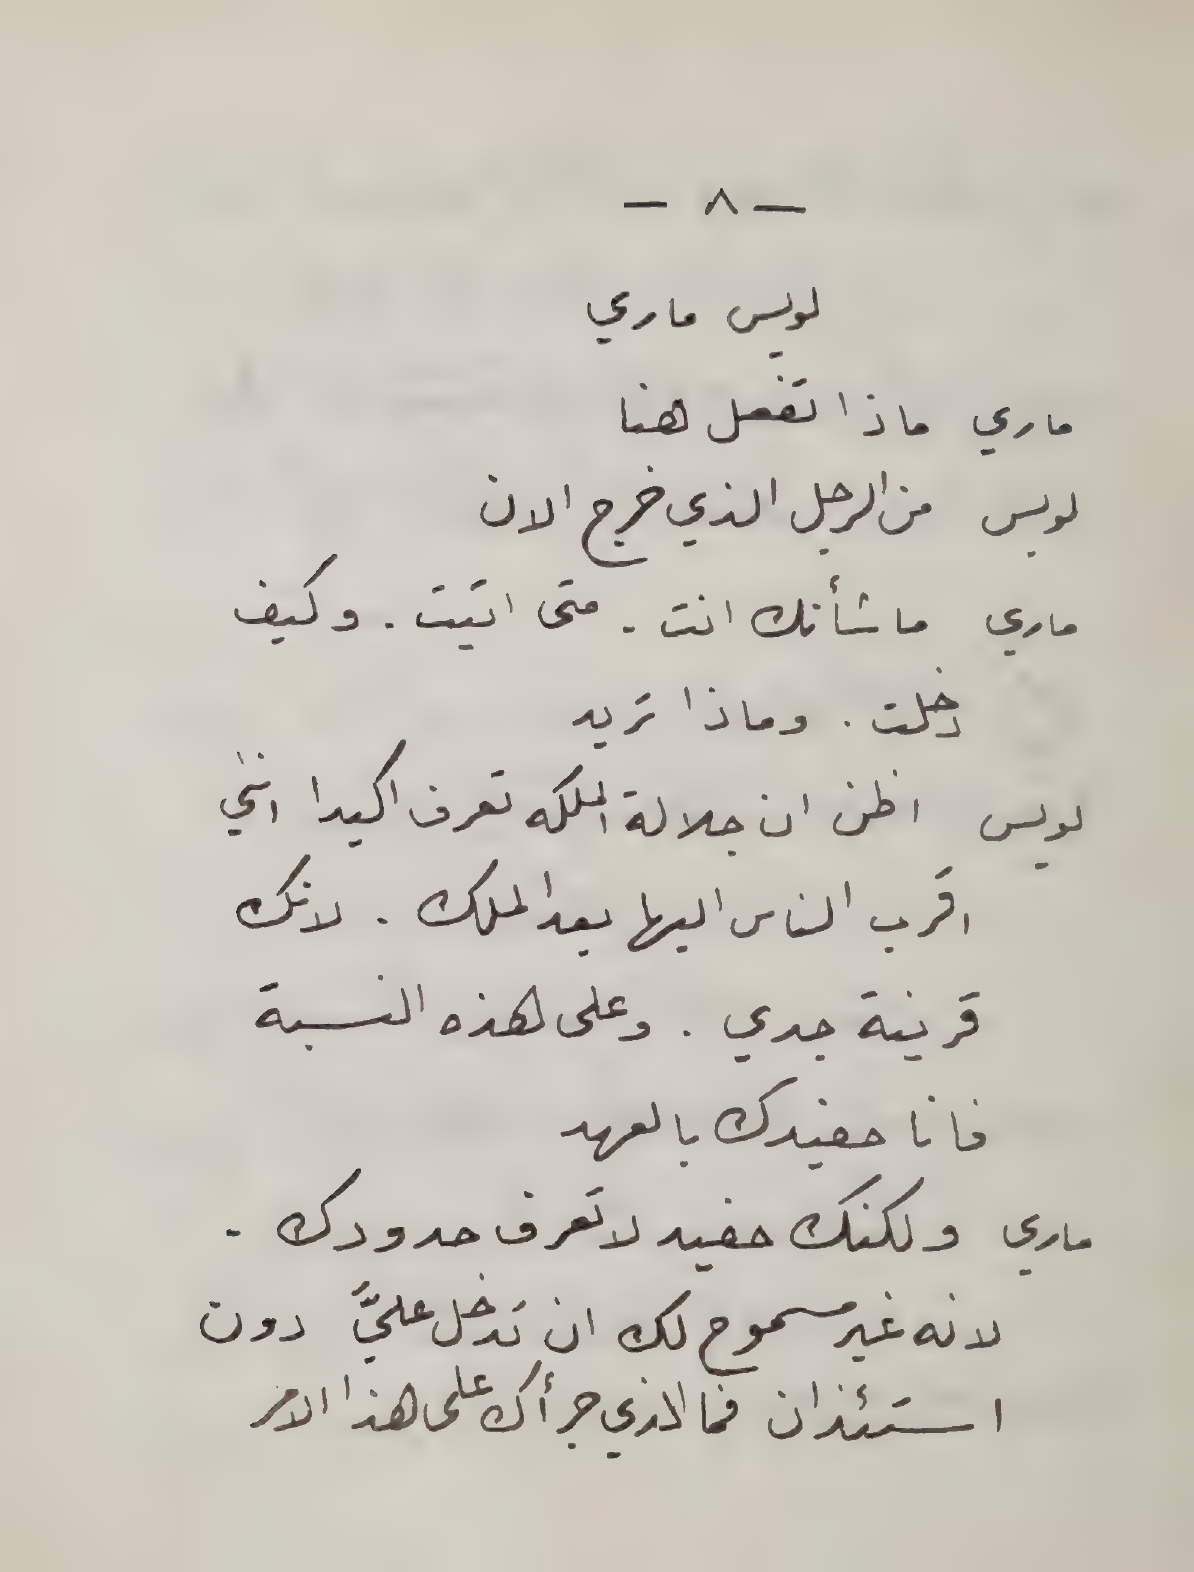 — ٨ —
لويس ماري
ماري ماذا تفعل هنا
لويس من الرجل الذي خرج الان
ماري ما شأنك انت . متى اتيت . وكيف
دخلت . وماذا تريد
لويس اظن ان جلالة الملكه تعرف اكيدا انني
اقرب الناس اليها بعد الملك . لانك
قرينة جدي . وعلى هذه النسبة
فانا حفيدك بالعهد
ماري ولكنك حفيد لا تعرف حدودك .
لانه غير مسموح لك ان تدخل عليَّ دون
استئذان فما الذي جرأك على هذا الامر